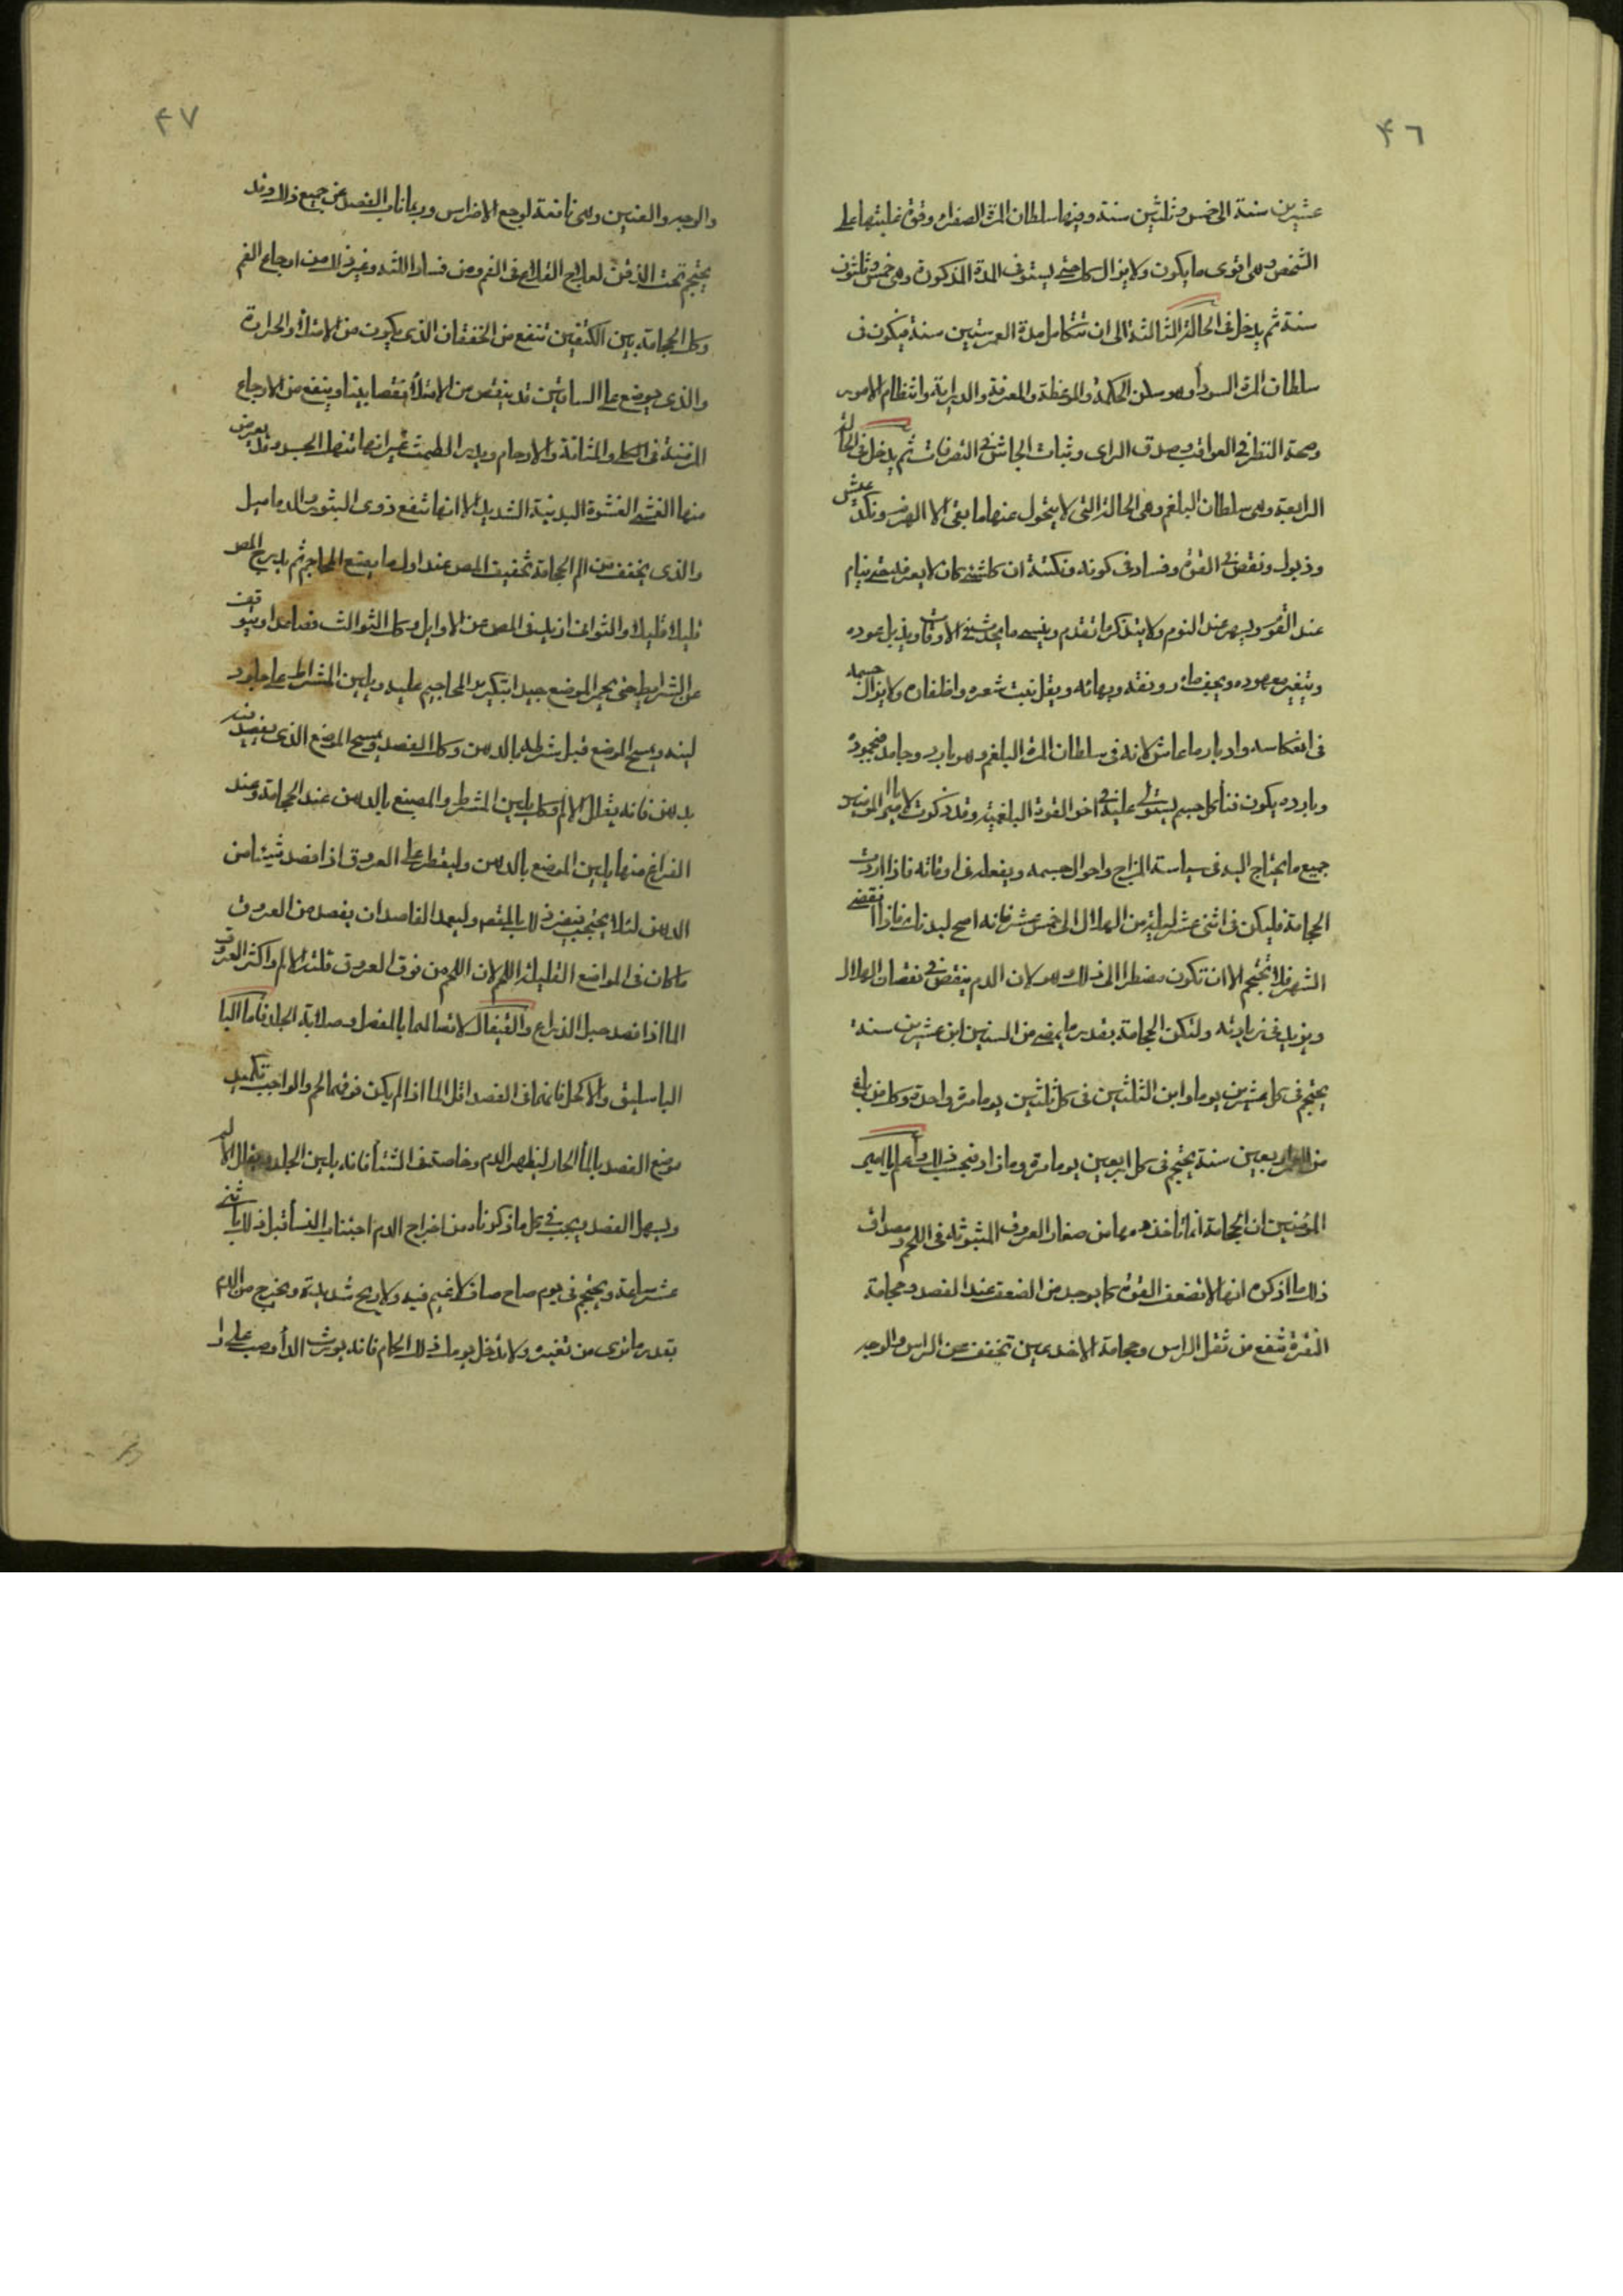 ٤٦
عشرين سنة الى خمس وثلثين سنة وفيها سلطان المرة الصفراء وقوة غلبتها على
الشخص وهى اقوى ما يكون ولا يزال كك حتى يستوفى المدة المذكورة وهى خمس وثلثون
سنة ثم يدخل فى الحالة الثالثة الى ان تتكامل مدة العمر ستين سنة فيكون فى
سلطان المرة السودأ وهو سن الحكمة والموعظة والمعرفة والدراية وانتظام الامور
وصحة النظر فى العواقب وصدق الراى وثبات الجاش فى التصرفات ثم يدخل فى الحالة
الرابعة وهى سلطان البلغم وهى الحالة التى لا يتحول عنها ما بقى الا الى الهرم ونكد عيش
وذبول ونقص فى القوة وفساد فى كونه ونكتة ان كل شئ كان لا يعرفه حتى ينام
عند القوم ويسهر عند النوم ولا يتذكر ما تقدم وينسى ما يحدث فى الاوقات ويذبل عوده
ويتغير معهوده ويجف ماء رونقه وبهائه ويقل نبت شعره واظفاره ولا يزال جسمه
فى انعكاس وادبار ما عاش لانه فى سلطان المرة البلغم وهو بارد وجامد فبجموده
وبارده يكون فناء كل جسم يستولى عليه فى اخر القوة البلغمية وقد ذكرت لامير المؤمنين
جميع ما يحتاج اليه فى سياسة المزاج واحوال جسمه ويفعله فى اوقاته فاذا اردت
الحجامة فليكن فى اثنى عشر ليلة من الهلال الى خمس عشر فانه اصح لبدنك فاذا انقضى
الشهر فلا تحتجم الا ان تكون مضطرا الى ذلك وهو لان الدم ينقص فى نقصان الهلال
ويزيد فى زيادته ولتكن الحجامة بقدر ما يمضى من السنين ابن عشرين سنة
يحتجم فى كل عشرين يوما وابن الثلثين فى كل ثلثين يوما مرة واحدة وكك من بلغ
من العمر اربعين سنة يحتجم فى كل اربعين يوما مرة وما زاد فبحسب ذلك واعلم يا امير
المؤمنين ان الحجامة انما تاخذ دمها من صغار العروق المبثوثة فى اللحم ومصداق
ذلك ما اذكره انها لا تضعف القوة كما يوجد من الضعف عند الفصد وحجامة
النقرة تنفع من ثقل الراس وحجامة الاخدعين تخفف عن الراس والوجه
٤٧
والوجه والعينين وهى نافعة لوجع الاضراس وربما ناب الفصد عن جميع ذلك وقد
يحتجم تحت الذقن لعلاج القلاع فى الفم ومن فساد اللثة وغير ذلك من اوجاع الفم
وكك الحجامة بين الكتفين تنفع من الخفقان الذى يكون من الامتلأ والحرارة
والذى يوضع على الساقين قد ينقص من الامتلأ نقصا بينا وينفع من الاوجاع
المزمنة فى الكلى والمثانة والارحام ويدر الطمث غير انها تنهك الجسد وقد يعرض
منها الغشى الغشوة البدنية الشديد الا انها تنفع ذوى البثور والدماميل
والذى يخفف من الم الحجامة تخفيف المص عند اول ما يضع المحاجم ثم يدرج المص
قليلا قليلا والثوانى ازيد فى المص من الاوايل وكك الثوالث فصاعدا ويتوقف
عن الشرط حتى يحمر الموضع جيدا بتكرير المحاجم عليه ويلين المشراط على جلود
لينه ويمسح الموضع قبل شرطه بالدهن وكك الفصد ويمسح الموضع الذى يفصد فيه
بدهن فانه يقلل الالم وكك يلين المشرط والمبضع بالدهن عند الحجامة وعند
الفراغ منها يلين الموضع بالدهن وليقطر على العروق اذا فصد شيئا من
الدهن لئلا يحتجب فيضر ذلك بالمقصود وليعمد الفاصد ان يفصد من العروق
ما كان فى المواضع القليلة اللحم لان اللحم من فوق العروق قلة الالم واكثر العروق
الما اذا فصد حبل الذراع والقيفال لاتصالهما بالعضل وصلابة الجلد فاما البا
الباسليق والاكحل فانهما فى الفصد اقل الما اذا لم يكن فوقهما لحم والواجب تكميد
موضع الفصد بالمأ الحار ليظهر الدم وخاصة فى الشتأ فانه يلين الجلد ويقلل الالم
ويسهل الفصد ويجب فى كل ما ذكرناه من اخراج الدم اجتناب النسأ قبل ذلك باثنى
عشر ساعة ويحتجم فى يوم صاح صاف لا غيم فيه ولا ريح شديدة ويخرج من الدم
بقدر ما ترى من تغيره ولا تدخل يومك ذلك الحمام فانه يورث الدأ وصب على را